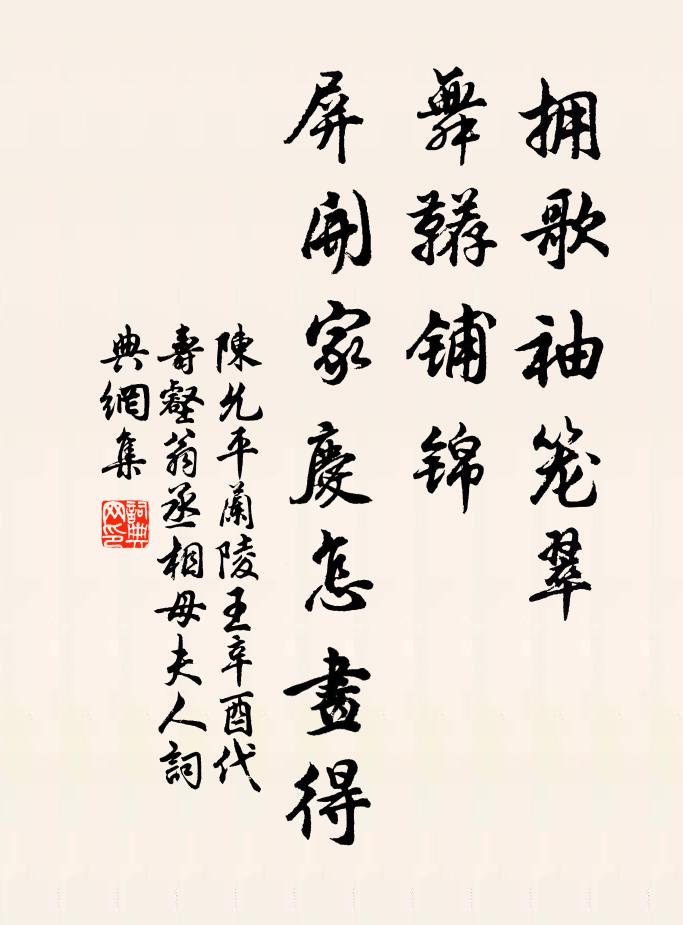 拥歌袖笼翠
舞鞯铺锦
屏開家慶怎畫得
陳允平蘭陵王辛酉代
壽壑翁丞相母夫人詞
典網集
詞典
网印